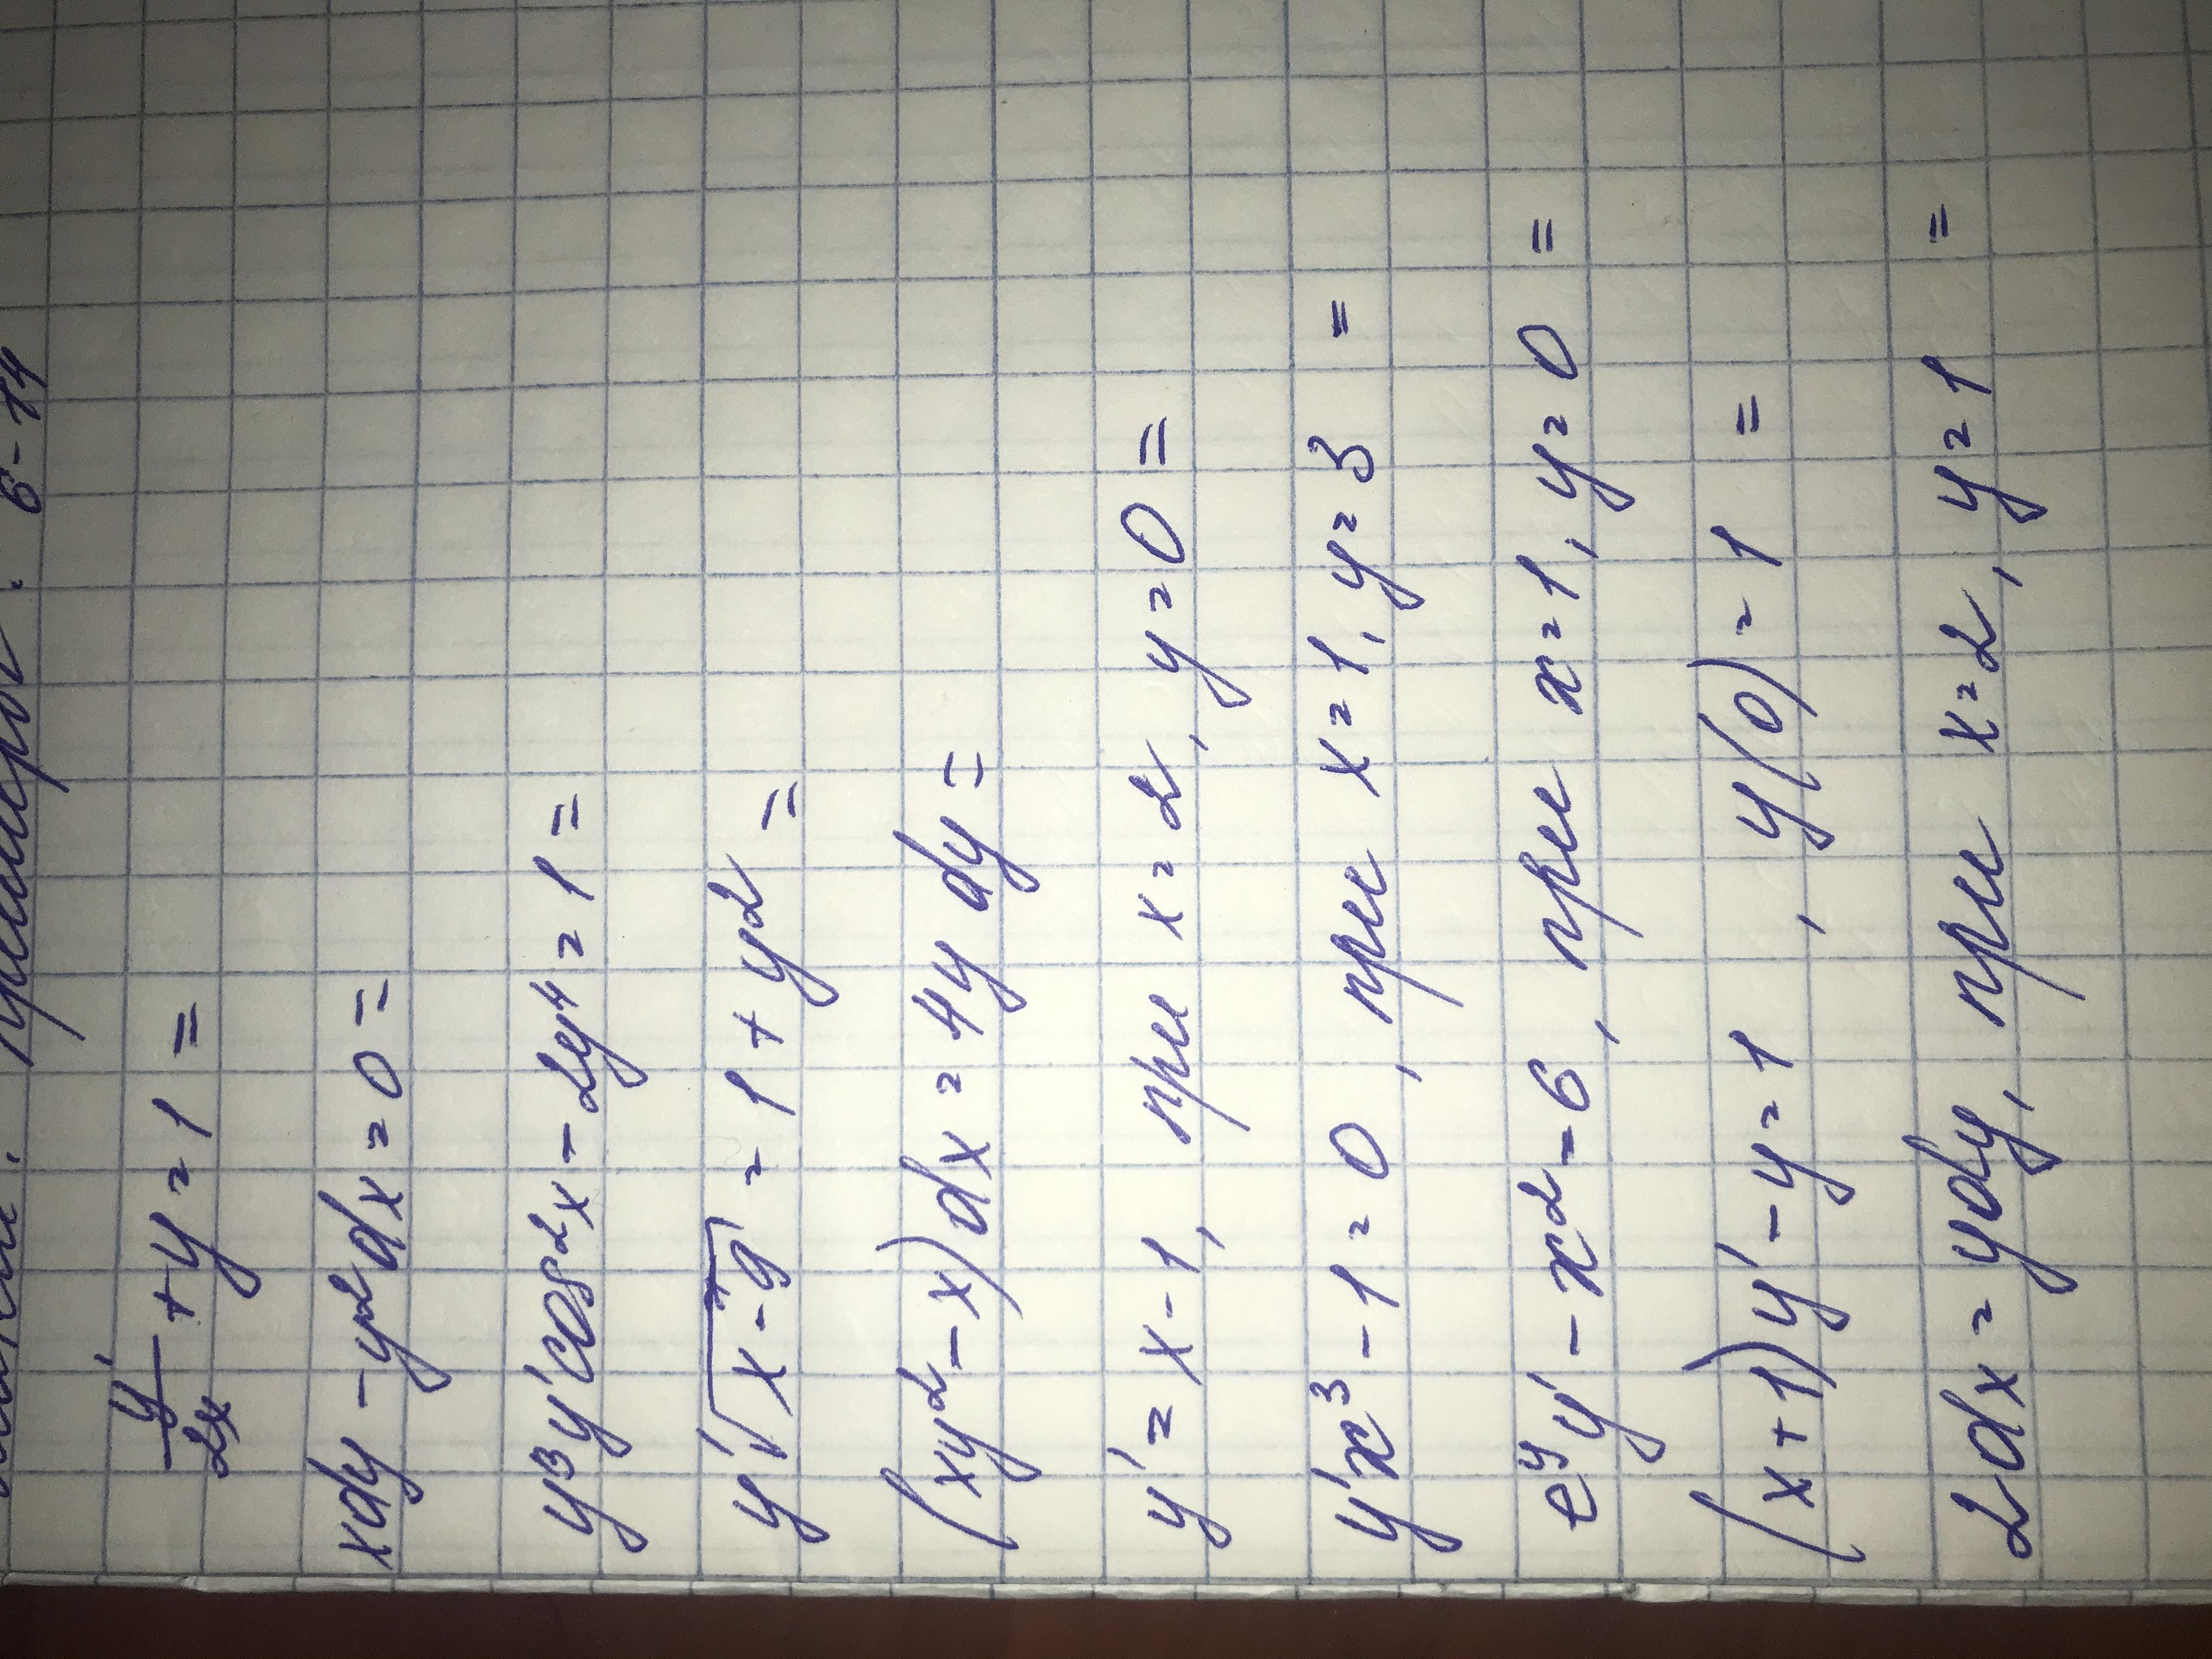 примеров. 6-14
y'/2x + y = 1 =
xdy - y²dx = 0 =
y³y'cos²x - 2y⁴ = 1 =
y'√x-9 = 1 + y² =
(xy² - x)dx = 4y dy =
y' = x - 1, при x = 2, y = 0 =
y'x³ - 1 = 0, при x = 1, y = 3 =
eʸy' - x² = 6, при x = 1, y = 0 =
(x+1)y' - y = 1, y(0) = 1 =
2dx = ydy, при x = 2, y = 1 =